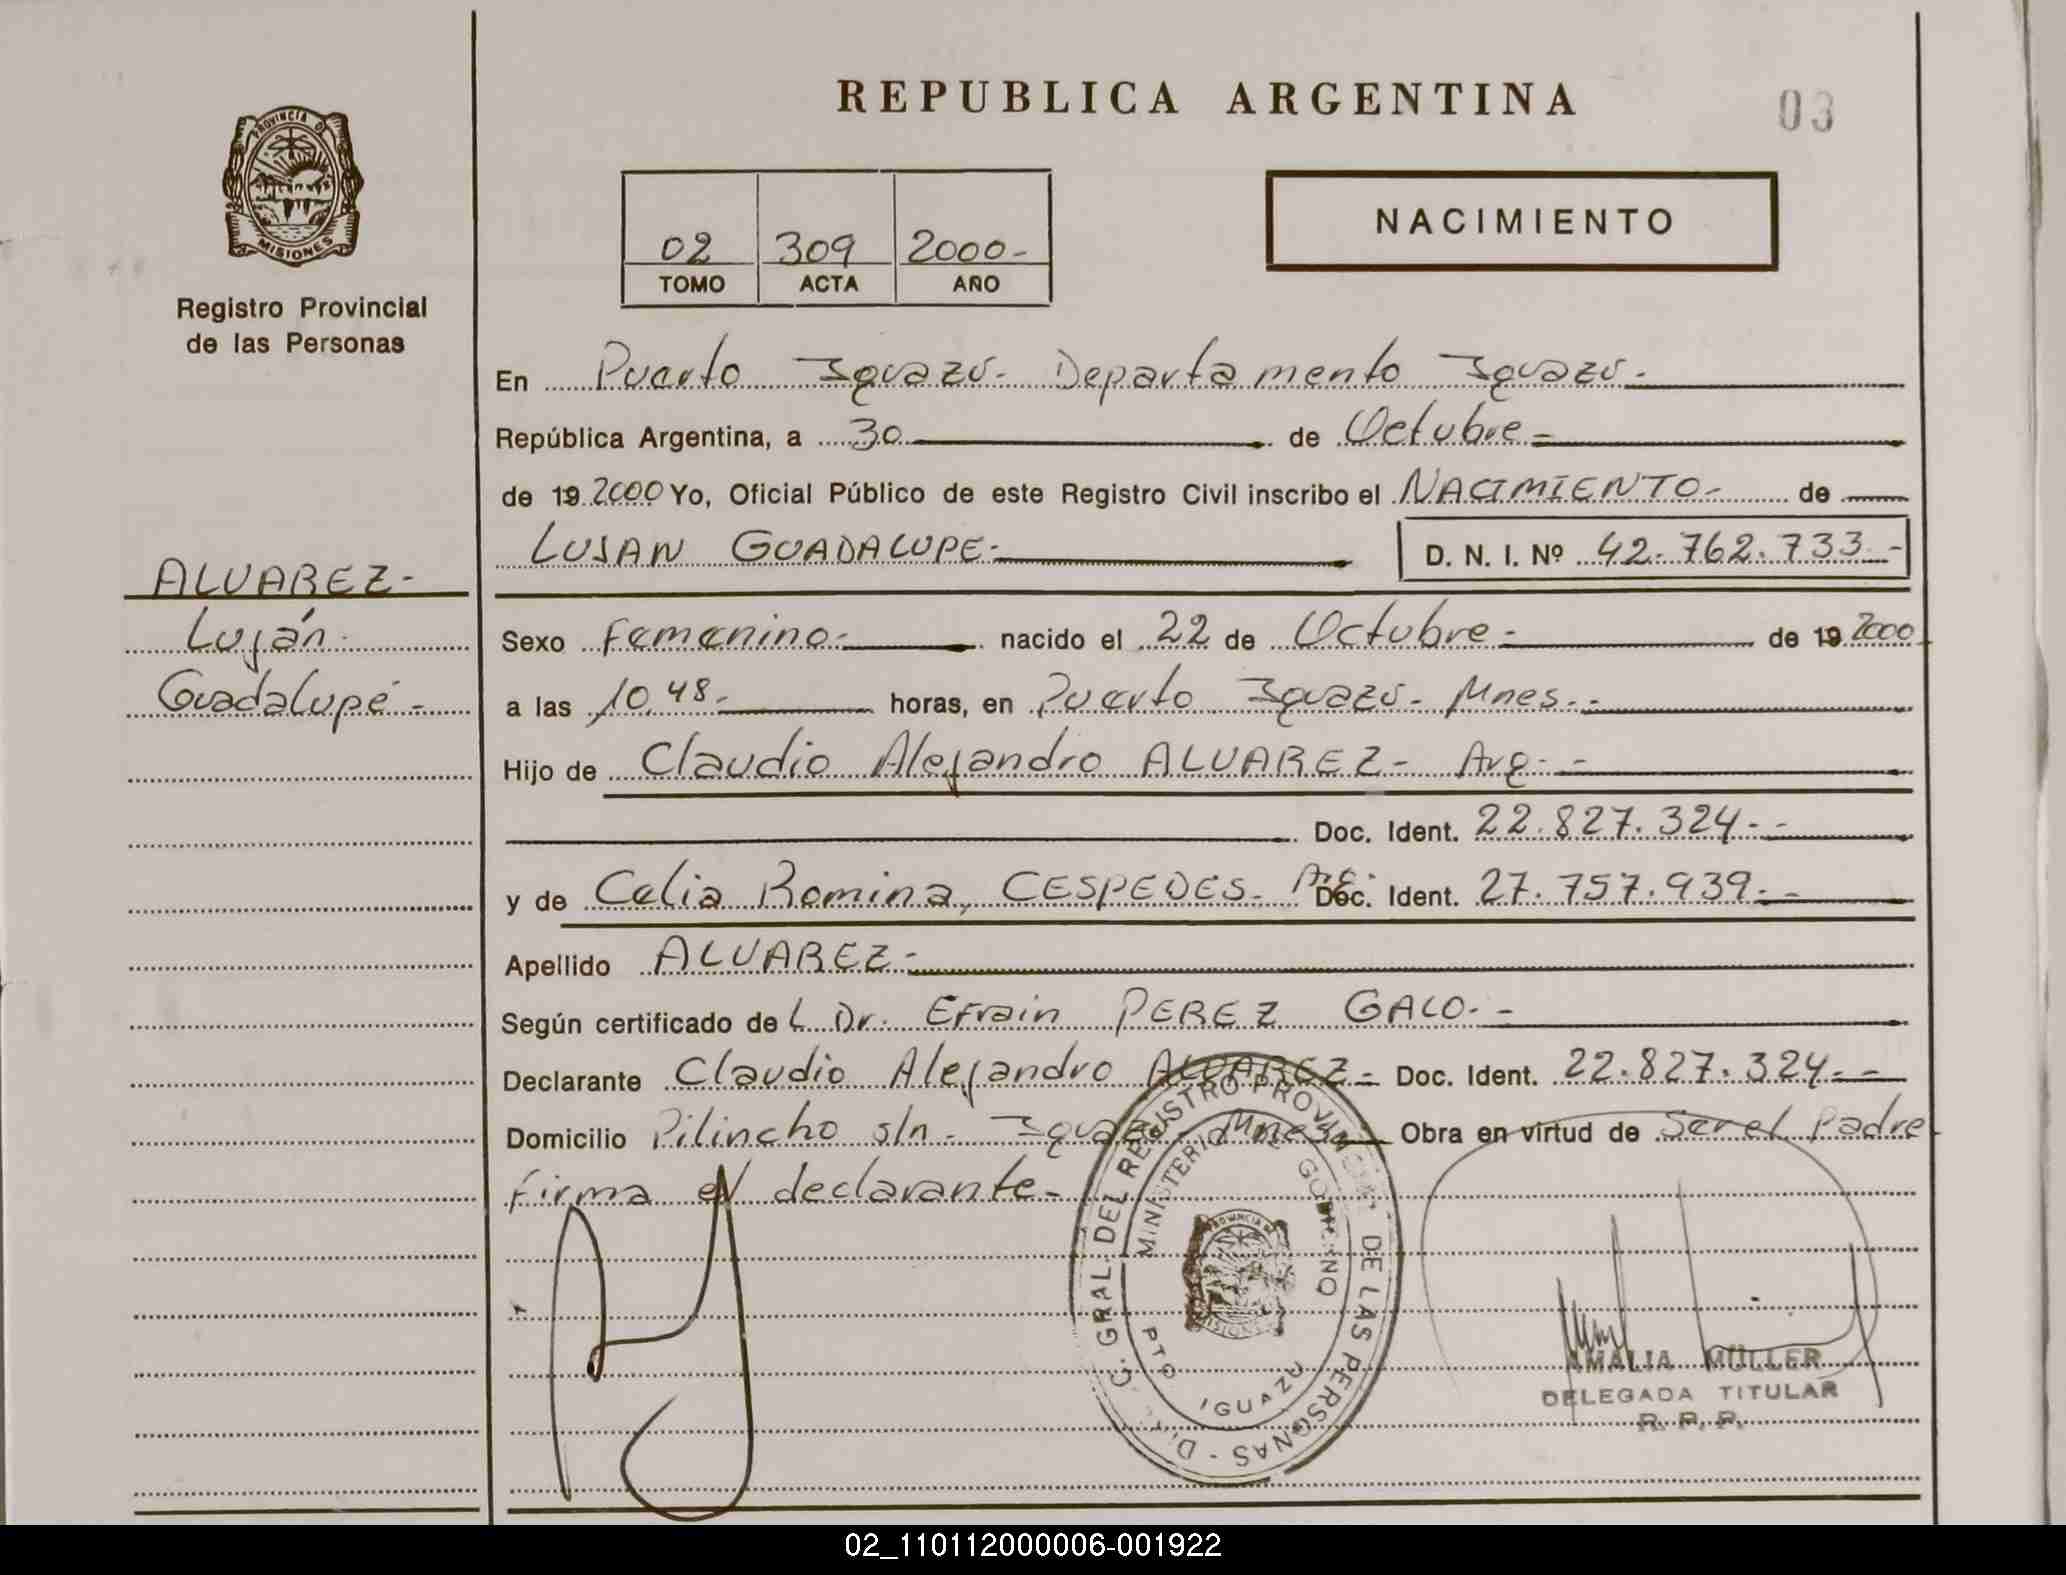 REPUBLICA ARGENTINA
03
PROVINCIA D
MISIONES
Registro Provincial
de las Personas
02 309 2000-
TOMO ACTA AÑO
NACIMIENTO
En Puerto Iguazú- Departamento Iguazú-
República Argentina, a 30 de Octubre-
de 19 2000 Yo, Oficial Público de este Registro Civil inscribo el NACIMIENTO- de
LUJAN GUADALUPE- D. N. I. Nº 42.762.733-
ALVAREZ-
Luján
Guadalupe-
Sexo Femenino- nacido el 22 de Octubre- de 19 2000
a las 10,48- horas, en Puerto Iguazú- Mnes.-
Hijo de Claudio Alejandro ALVAREZ- Arg.-
Doc. Ident. 22.827.324--
y de Celia Romina, CESPEDES- Arg.- Doc. Ident. 27.757.939.-
Apellido ALVAREZ-
Según certificado de L Dr. Efrain PEREZ GALO.-
Declarante Claudio Alejandro ALVAREZ- Doc. Ident. 22.827.324--
Domicilio Pilincho s/n- Iguazú- Mnes Obra en virtud de Ser el Padre
Firma el declarante-
DIR. GRAL. DEL REGISTRO PROVINCIAL DE LAS PERSONAS
MINISTERIO DE GOBIERNO
PTO IGUAZU
PROVINCIA D
MISIONES
AMALIA MÜLLER
DELEGADA TITULAR
R. P. P.
02_110112000006-001922